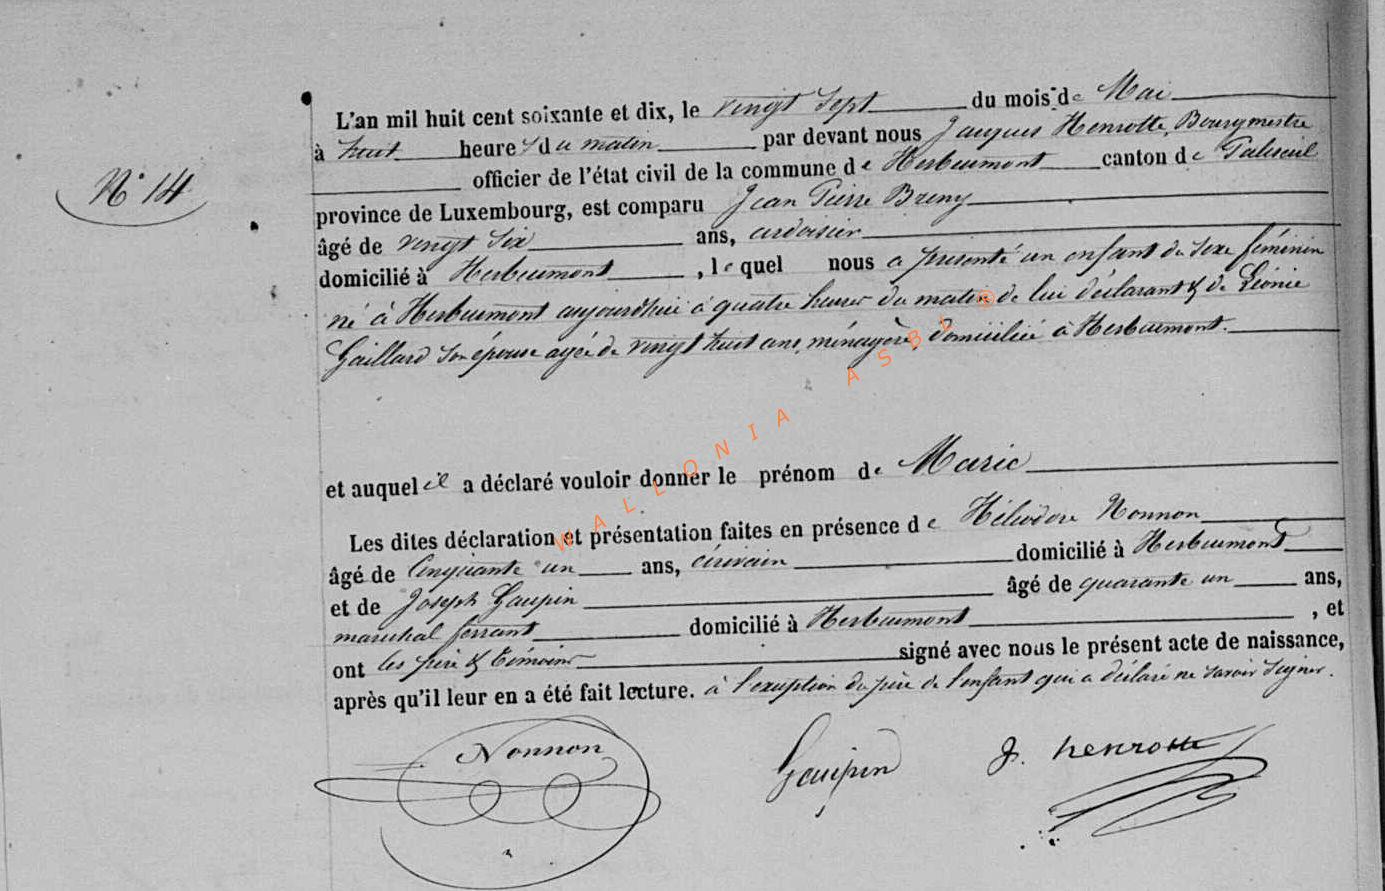 L'an mil huit cent soixante et dix, le vingt Sept du mois de Mai
à huit heures du matin par devant nous Jacques Henrotte, Bourgmestre
officier de l'état civil de la commune de Herbeumont canton de Paliseul
N° 14
province de Luxembourg, est comparu Jean Pierre Breny
âgé de vingt Six ans, ardoisier
domicilié à Herbeumont, lequel nous a présenté un enfant du Sexe féminin
né à Herbeumont aujourdhui à quatre heures du matin de lui déclarant & de Léonie
Gaillard Son épouse agée de vingt huit ans, ménagère, domiciliée à Herbeumont.
WALLONIA ASBL ®
et auquel il a déclaré vouloir donner le prénom de Marie
Les dites déclaration et présentation faites en présence de Héliodore Nonnon
âgé de Cinquante un ans, écrivain domicilié à Herbeumont
et de Joseph Gaupin âgé de quarante un ans,
maréchal ferrant domicilié à Herbeumont, et
ont les père & témoins signé avec nous le présent acte de naissance,
après qu'il leur en a été fait lecture. à l'exception du père de l'enfant qui a déclaré ne Savoir Signer.
Nonnon Gaupin J. henrotte